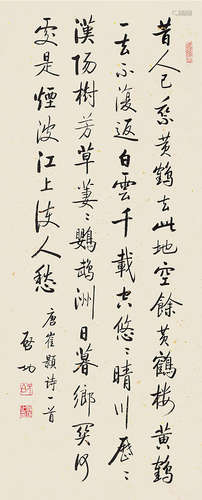 昔人已乘黃鶴去此地空餘黃鶴樓黃鶴
一去不復返白雲千載空悠〻晴川歷〻
漢陽樹芳草萋〻鸚鵡洲日暮鄉關何
處是煙波江上使人愁
唐崔顥詩一首
啟功